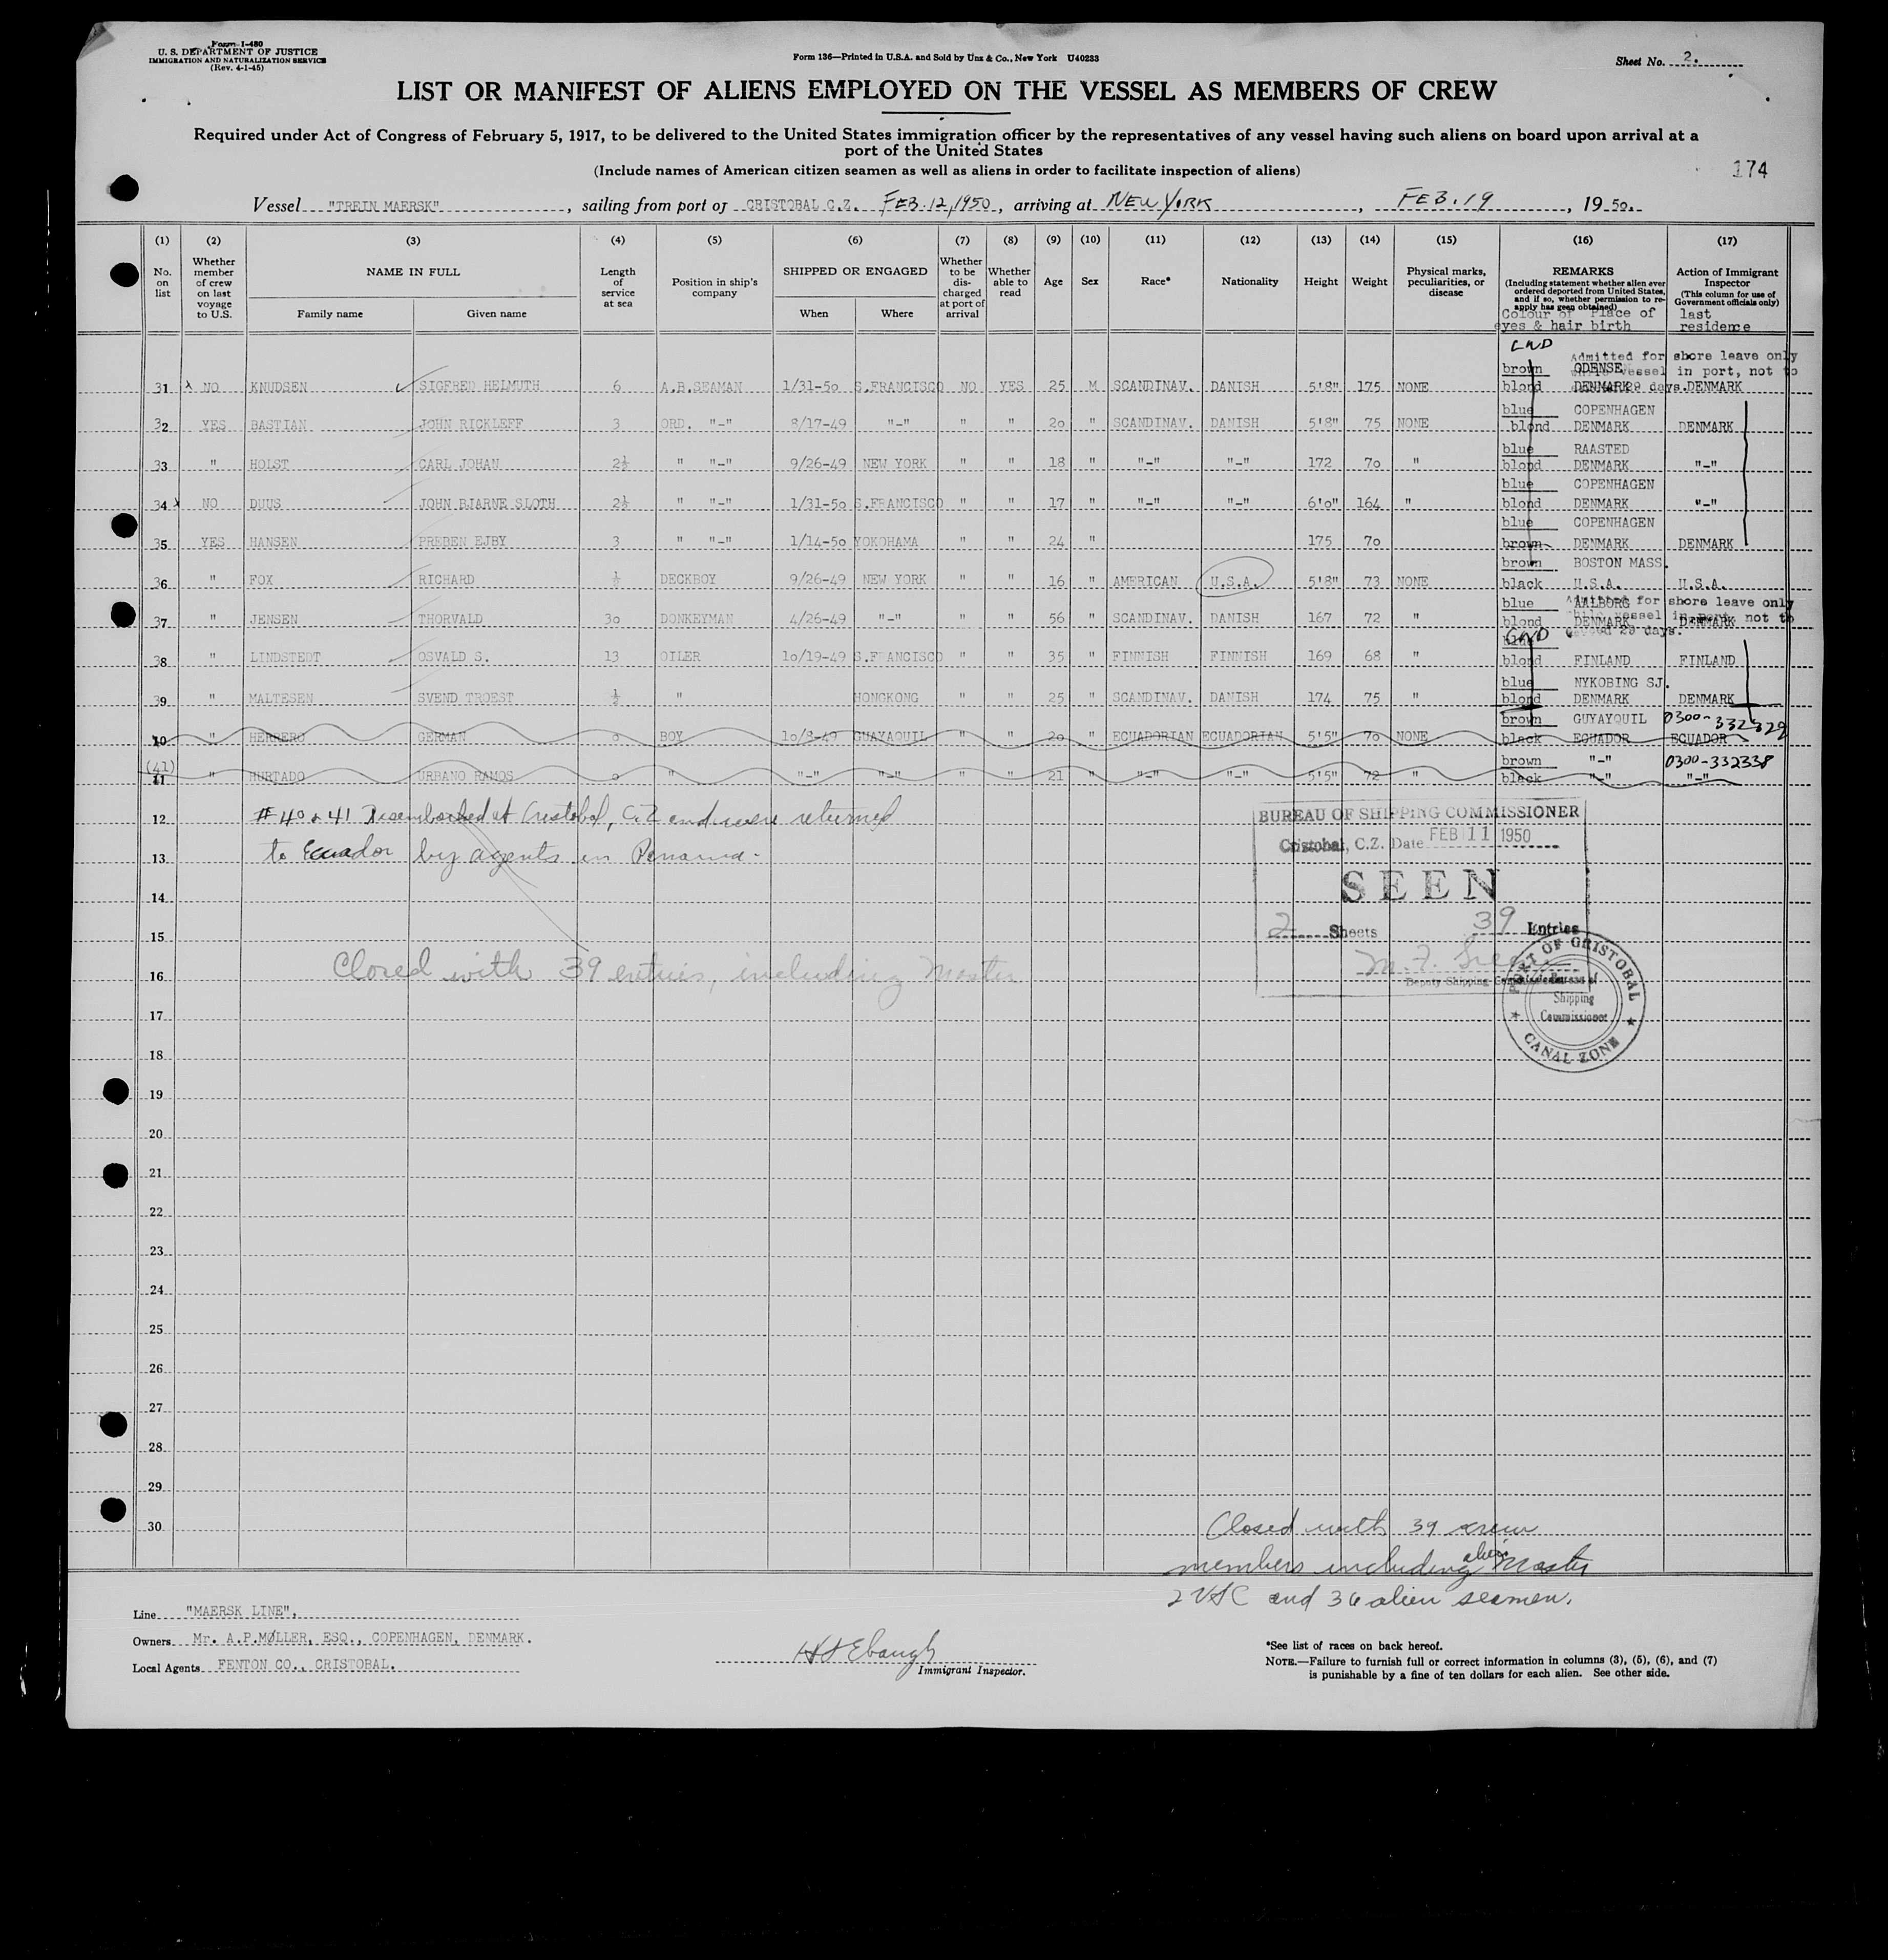 Form I-480
U. S. DEPARTMENT OF JUSTICE
IMMIGRATION AND NATURALIZATION SERVICE
(Rev. 4-1-45)
Form 136—Printed in U.S.A. and Sold by Unz & Co., New York U40233
Sheet No. 2.
LIST OR MANIFEST OF ALIENS EMPLOYED ON THE VESSEL AS MEMBERS OF CREW
Required under Act of Congress of February 5, 1917, to be delivered to the United States immigration officer by the representatives of any vessel having such aliens on board upon arrival at a
port of the United States
(Include names of American citizen seamen as well as aliens in order to facilitate inspection of aliens)
174
Vessel "TREIN MAERSK", sailing from port of CRISTOBAL C.Z. FEB. 12, 1950, arriving at NEW YORK, FEB. 19, 1950.
(1) (2) (3) (4) (5) (6) (7) (8) (9) (10) (11) (12) (13) (14) (15) (16) (17)
No. on list
Whether member of crew on last voyage to U.S.
NAME IN FULL
Family name Given name
Length of service at sea
Position in ship's company
SHIPPED OR ENGAGED
When Where
Whether to be discharged at port of arrival
Whether able to read
Age
Sex
Race*
Nationality
Height
Weight
Physical marks, peculiarities, or disease
REMARKS
(Including statement whether alien ever ordered deported from United States, and if so, whether permission to reapply has been obtained)
Colour of eyes & hair Place of birth
Action of Immigrant Inspector
(This column for use of Government officials only)
last residence
LND
Admitted for shore leave only
vessel in port, not to
29 days.
31 NO KNUDSEN SIGFRED HELMUTH 6 A.B.SEAMAN 1/31-50 S.FRANCISCO NO YES 25 M SCANDINAV. DANISH 5'8" 175 NONE brown blond ODENSE DENMARK DENMARK
32 YES BASTIAN JOHN RICKLEFF 3 ORD. "-" 8/17-49 "-" " " 20 " SCANDINAV. DANISH 5'8" 75 NONE blue blond COPENHAGEN DENMARK DENMARK
33 " HOLST CARL JOHAN 2½ " "-" 9/26-49 NEW YORK " " 18 " "-" "-" 172 70 " blue blond RAASTED DENMARK "-"
34 NO DUUS JOHN BJARNE SLOTH 2½ " "-" 1/31-50 S.FRANCISCO " " 17 " "-" "-" 6'0" 164 " blue blond COPENHAGEN DENMARK "-"
35 YES HANSEN PREBEN EJBY 3 " "-" 1/14-50 YOKOHAMA " " 24 " 175 70 blue brown COPENHAGEN DENMARK DENMARK
36 " FOX RICHARD ½ DECKBOY 9/26-49 NEW YORK " " 16 " AMERICAN U.S.A. 5'8" 73 NONE brown black BOSTON MASS. U.S.A. U.S.A.
Admitted for shore leave only
while vessel in port, not to
exceed 29 days.
37 " JENSEN THORVALD 30 DONKEYMAN 4/26-49 "-" " " 56 " SCANDINAV. DANISH 167 72 " blue blond AALBORG DENMARK DENMARK
LND
38 " LINDSTEDT OSVALD S. 13 OILER 10/19-49 S.FRANCISCO " " 35 " FINNISH FINNISH 169 68 " blue blond FINLAND FINLAND
39 " MALTESEN SVEND TROEST ½ " HONGKONG " " 25 " SCANDINAV. DANISH 174 75 " blue blond NYKOBING SJ. DENMARK DENMARK
40 " HERRERO GERMAN 0 BOY 10/8-49 GUAYAQUIL " " 20 " ECUADORIAN ECUADORIAN 5'5" 70 NONE brown black GUYAYQUIL ECUADOR 0300-332329 ECUADOR
(41) 11 " HURTADO URBANO RAMOS 0 " "-" "-" " " 21 " "-" "-" 5'5" 72 " brown black "-" "-" 0300-332338 "-"
12 #40 & 41 Disembarked at Cristobal, C.Z and were returned
13 to Ecuador by agents in Panama-
14
15
16 Closed with 39 entries, including Master
17
18
19
20
21
22
23
24
25
26
27
28
29
30
BUREAU OF SHIPPING COMMISSIONER
Cristobal, C.Z. Date FEB 11 1950
SEEN
2 Sheets 39 Entries
Deputy Shipping Commissioner
PORT OF CRISTOBAL
Bureau of
Shipping
Commissioner
CANAL ZONE
Closed with 39 crew
members including alien Master
2 USC and 36 alien seamen.
Line "MAERSK LINE",
Owners Mr. A.P.MØLLER, ESQ., COPENHAGEN, DENMARK.
Local Agents FENTON CO., CRISTOBAL.
Ebaugh
Immigrant Inspector.
*See list of races on back hereof.
NOTE.—Failure to furnish full or correct information in columns (3), (5), (6), and (7)
is punishable by a fine of ten dollars for each alien. See other side.